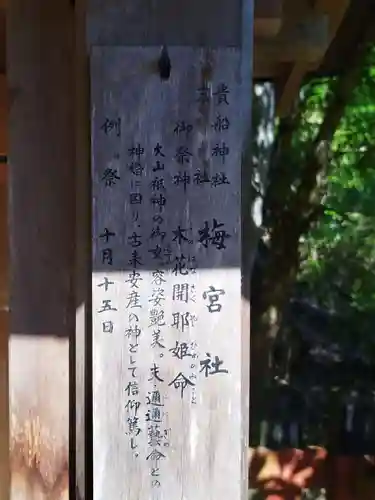 貴船神社
末社
梅宮社
御祭神 木花開耶姫命
大山祇神の御女。容姿艶美。天邇邇藝命との
神婚に因り、古来安産の神として信仰篤し。
例祭 十月十五日